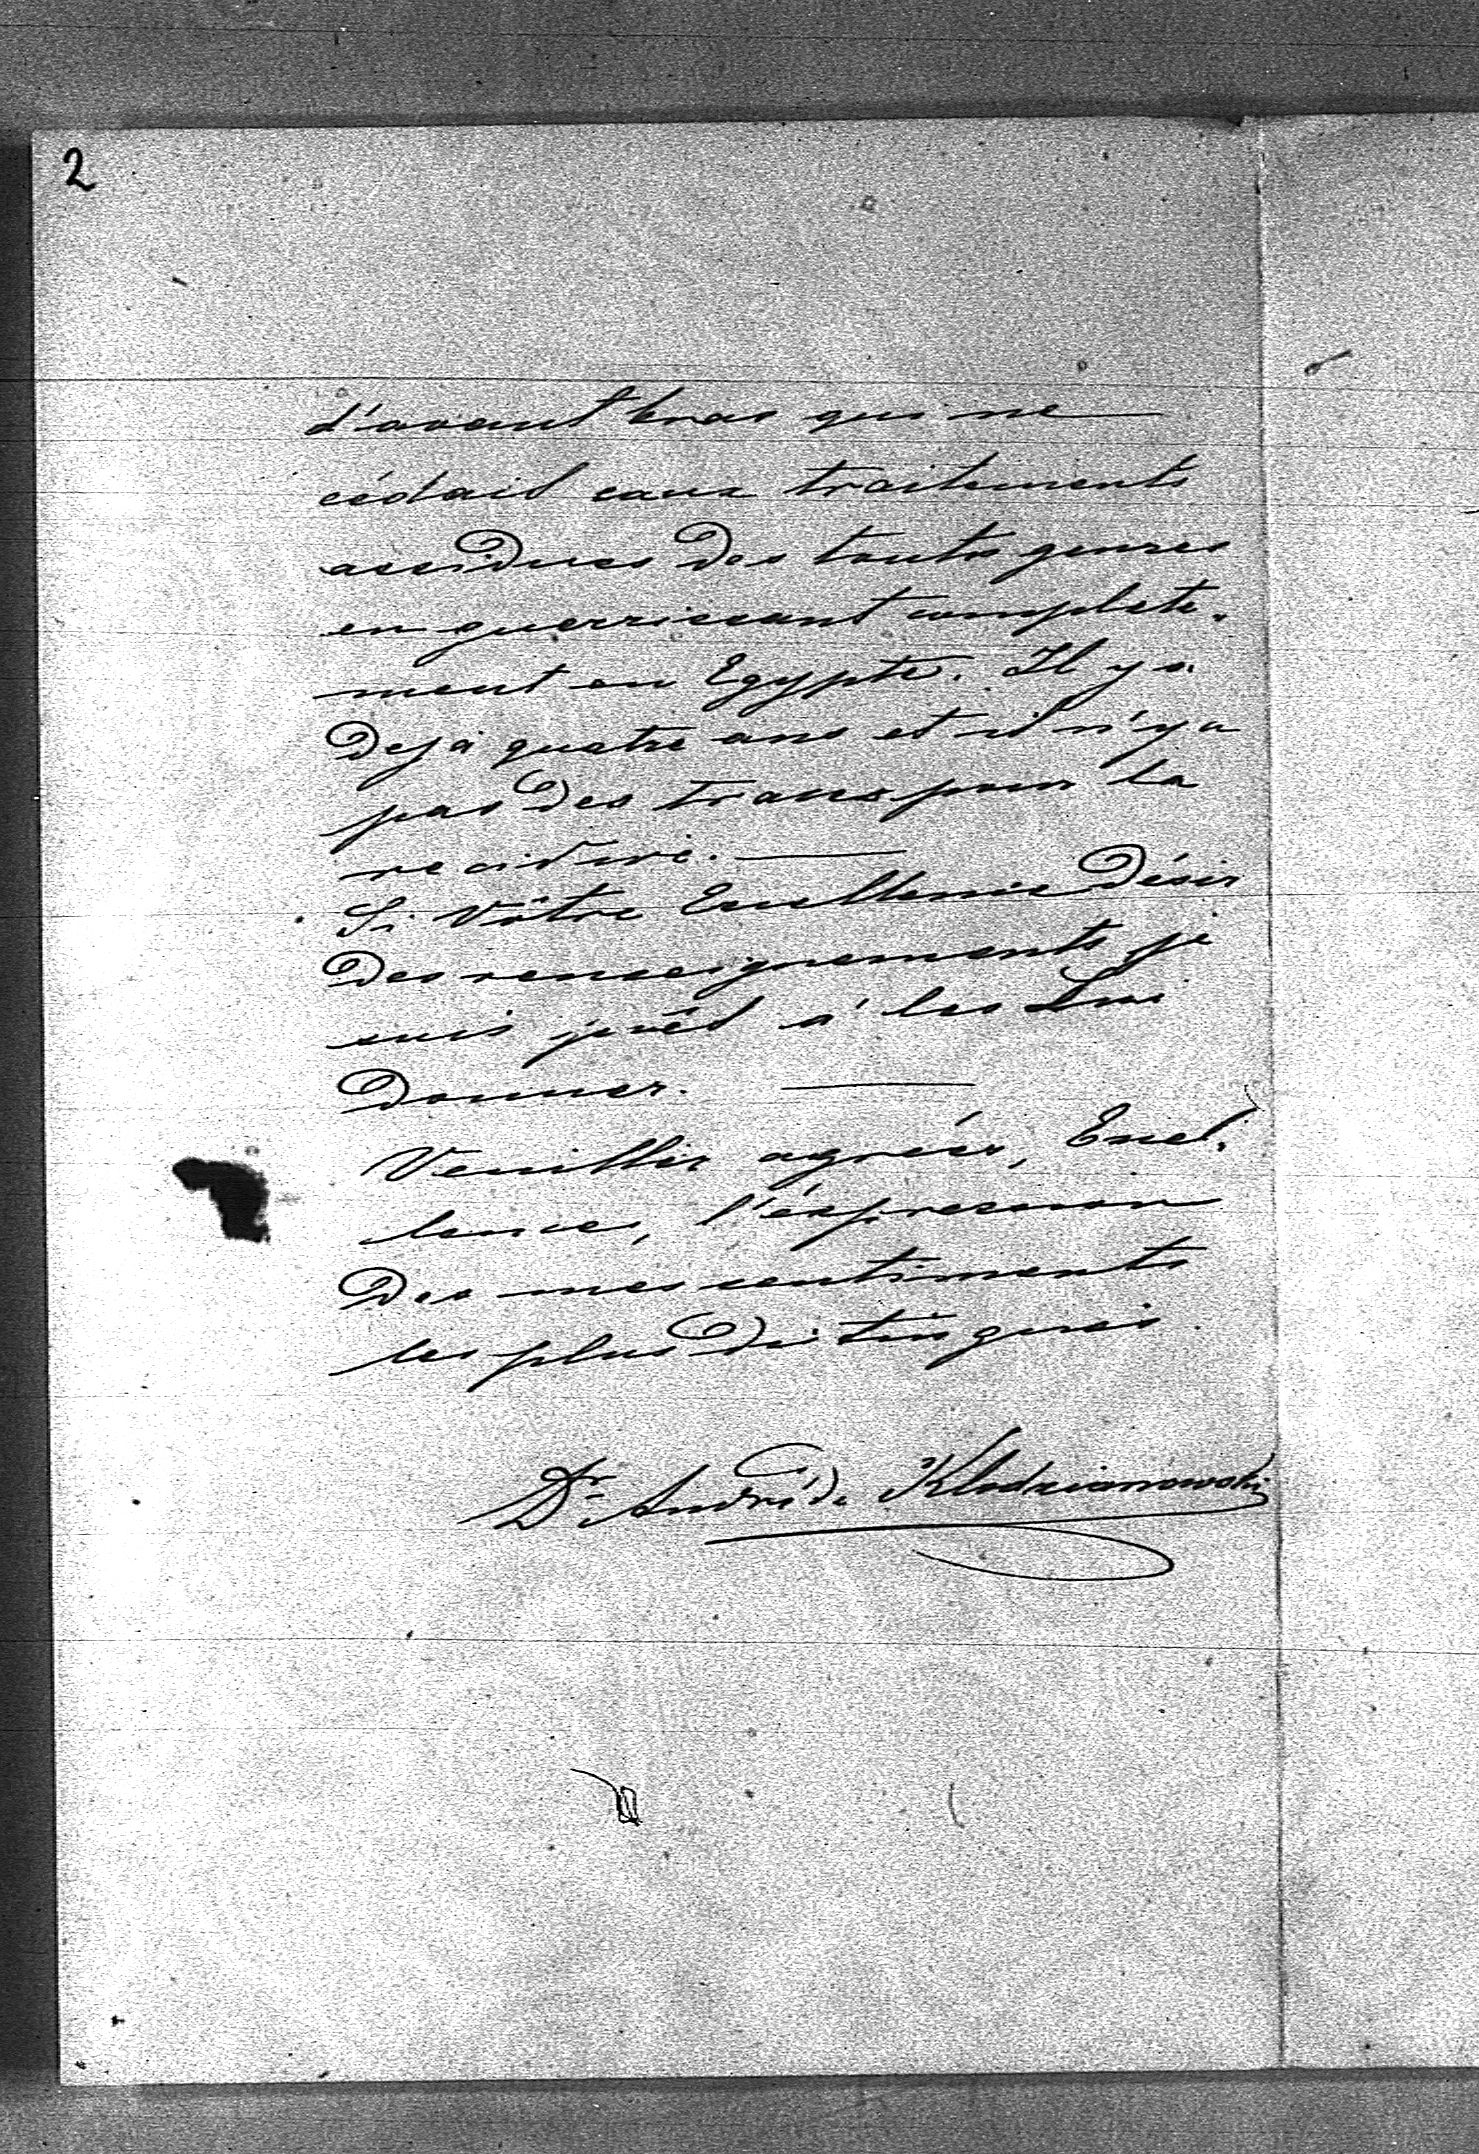 2
d'avant bras qui ne
cédait aux traitements
assidues des touts genres
en guerrissant complete-
ment en Egypte. Il y a
Deja quatre ans et il n'y a
pas des traces pour la
recidive.
Si Vôtre Excellence désir
des renseignements je
suis prêt a les Lui
donner.
Veuillez agréer, Excel-
lence, l'éxpression
des mes sentiments
les plus distingués.
Dr André de Klodzianowski